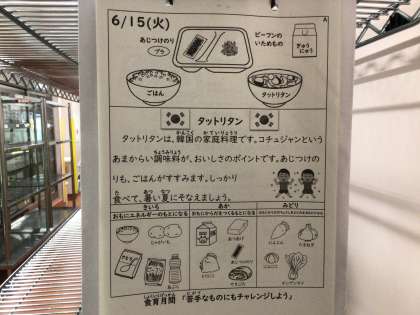 6/15(火)
A
あじつけのり
プラ
ビーフンの
いためもの
ぎゅう
にゅう
ごはん
タットリタン
タットリタン
タットリタンは、韓国の家庭料理です。コチュジャンという
かんこく かていりょうり
あまからい調味料が、おいしさのポイントです。あじつけの
ちょうみりょう
りも、ごはんがすすみます。しっかり
食べて、暑い夏にそなえましょう。
た あつ なつ
きいろ
あか
みどり
おもにエネルギーのもとになる
おもにからだをつくるもとになる
じゃがいも
あぶら
あぶらあげ
あじつけのり
とりにく
にんじん
たまねぎ
チンゲンサイ
しょくいくげっかん にがて
食育月間 「苦手なものにもチャレンジしよう」